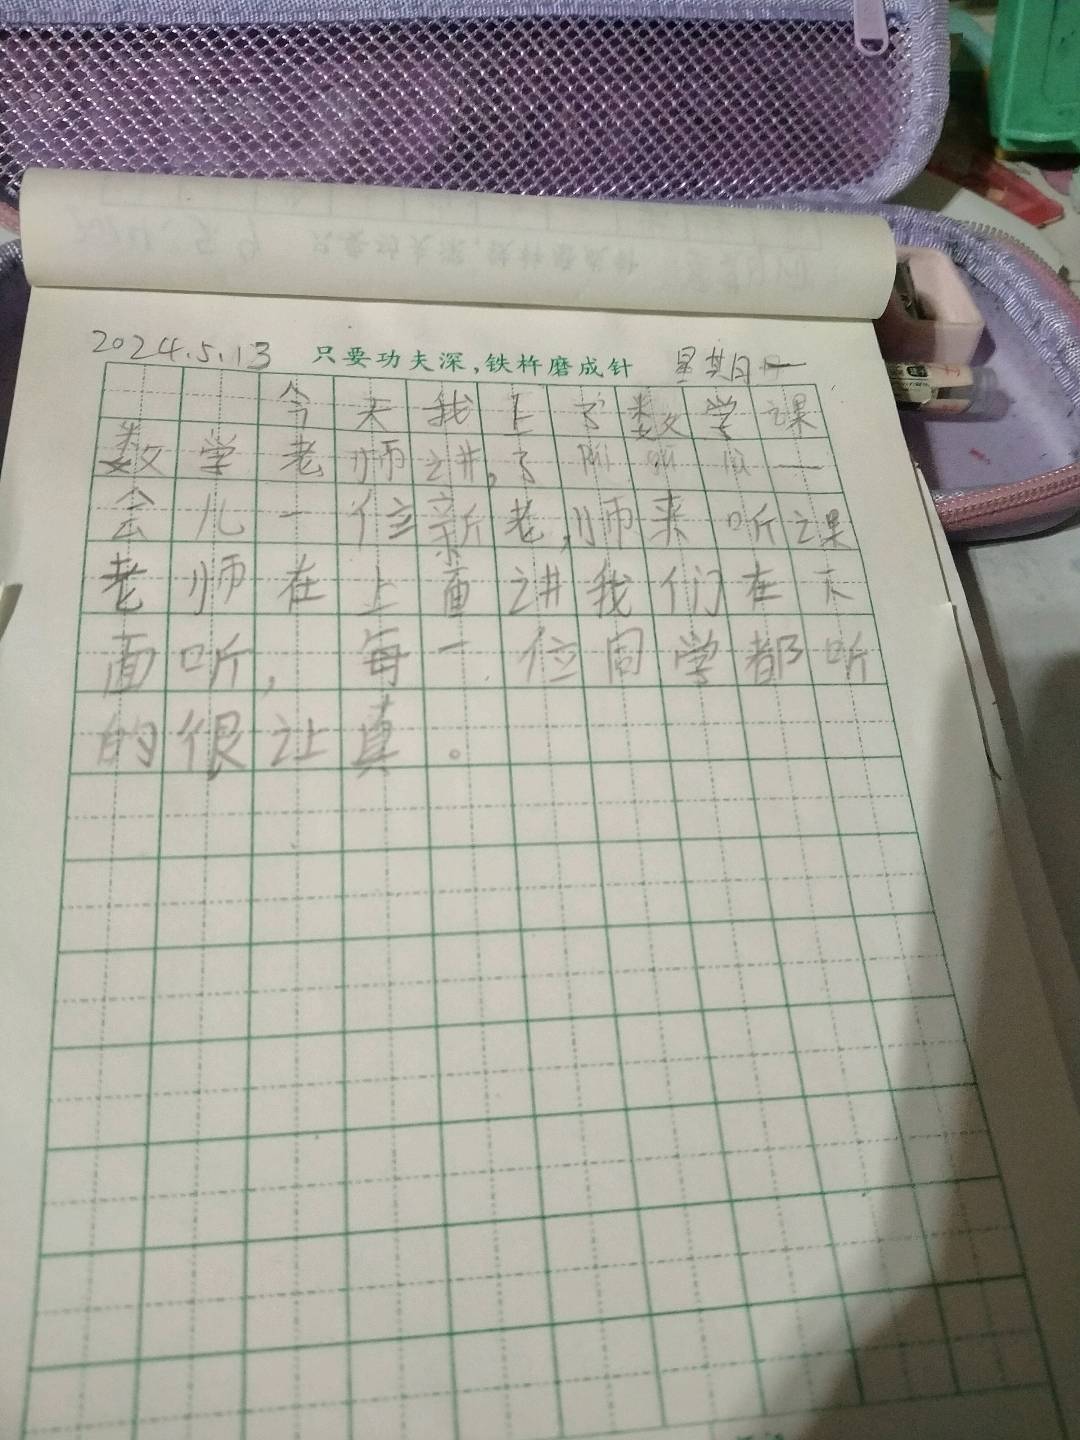 2024.5.13 只要功夫深,铁杵磨成针 星期一
今天我上了数学课
数学老师讲,了 一
会儿一位新老,师来听课
老师在上面讲我们在下
面听,每一位同学都听
的很让真。